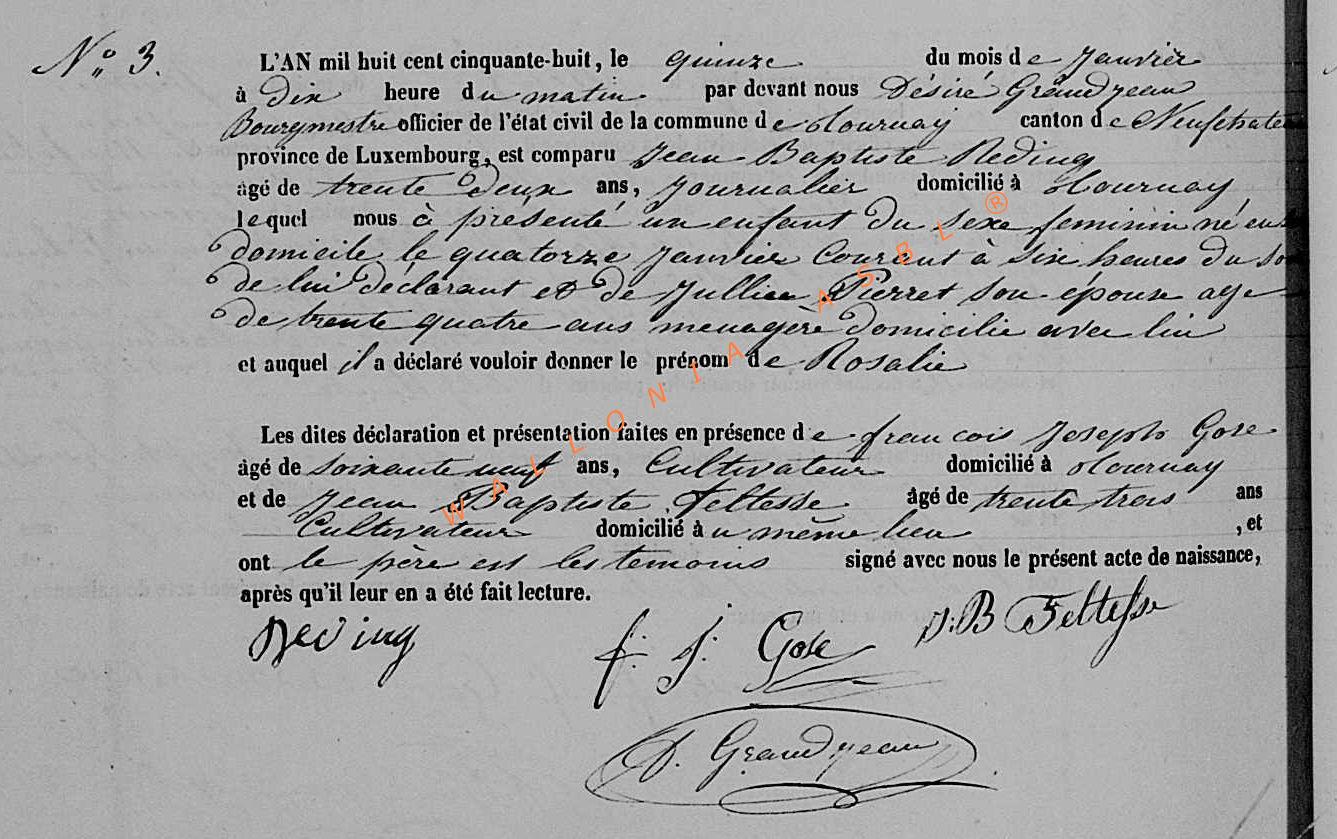 N° 3.
L'AN mil huit cent cinquante-huit, le quinze du mois de Janvier
à Dix heure du matin par devant nous Désiré Grandjean
Bourgmestre officier de l'état civil de la commune de Tournay canton de Neufchateau
province de Luxembourg, est comparu Jean Baptiste Reding
âgé de trente deux ans, Journalier domicilié à Tournay
lequel nous à présenté un enfant du sexe feminin né en
domicile le quatorze Janvier Courent à six heures du
de lui déclarant et de Jullien Pierret son épouse age
de trente quatre ans menagère domicilie avec lui
et auquel il a déclaré vouloir donner le prénom de Rosalie
Les dites déclaration et présentation faites en présence de francois Joseph Gose
âgé de soixante neuf ans, Cultivateur domicilié à Tournay
et de Jean Baptiste Feltesse âgé de trente trois ans
Cultivateur domicilié àu même lieu , et
ont le père est les temoins signé avec nous le présent acte de naissance,
après qu'il leur en a été fait lecture.
Reding f. J. Gose J: B Feltesse
D. Grandjean
WALLONIA ASBL ®